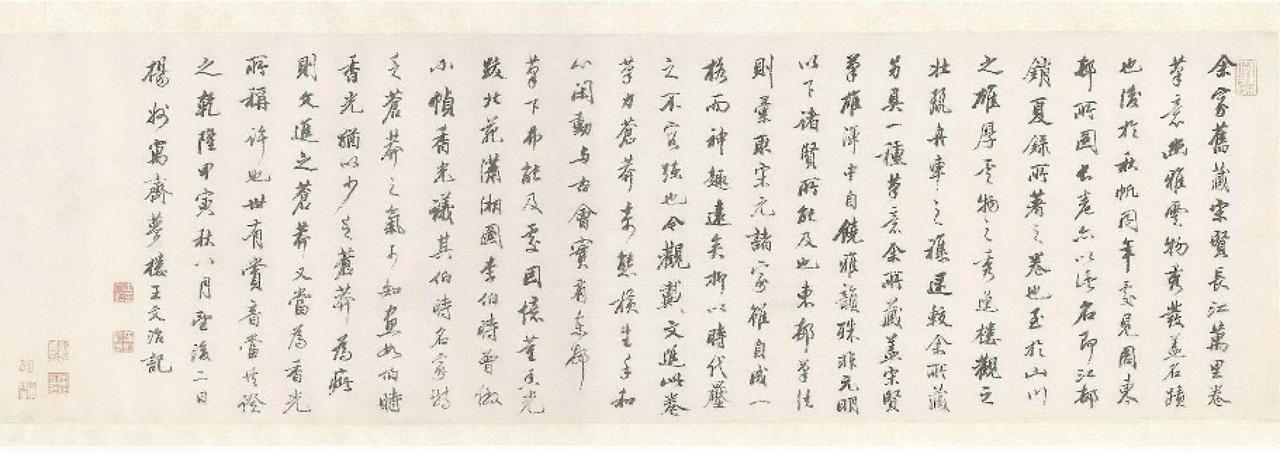 余家舊藏宋賢長江萬里卷
筆意幽雅雲物秀發蓋名蹟
也後於秋帆同年處見周東
邨所圖長卷亦以溪名即江邨
銷夏錄所著之卷也至於山川
之雄厚雲物之秀逸樓觀之
壯麗舟車之穠運較余所藏
另具一種筆意余所藏蓋宋賢
筆雄渾中自饒雅韻殊非元明
以下諸賢所能及也東邨筆法
則彙取宋元諸家雖自成一
格而神趣遠矣抑以時代壓
之不容強也今觀戴文進此卷
筆力蒼莽奇態橫生手和
心閑動與古會實有東邨
筆下弗能及處因憶董香光
跋北苑瀟湘圖李伯時曾倣
小幀香光議其伯時名家特
乏蒼莽之氣可知畫如伯時
香光猶以少乏蒼莽為病
則文進之蒼莽又當為香光
所稱許也世有賞音當共證
之乾隆甲寅秋八月望後二日
揚州寓齋夢樓王文治記